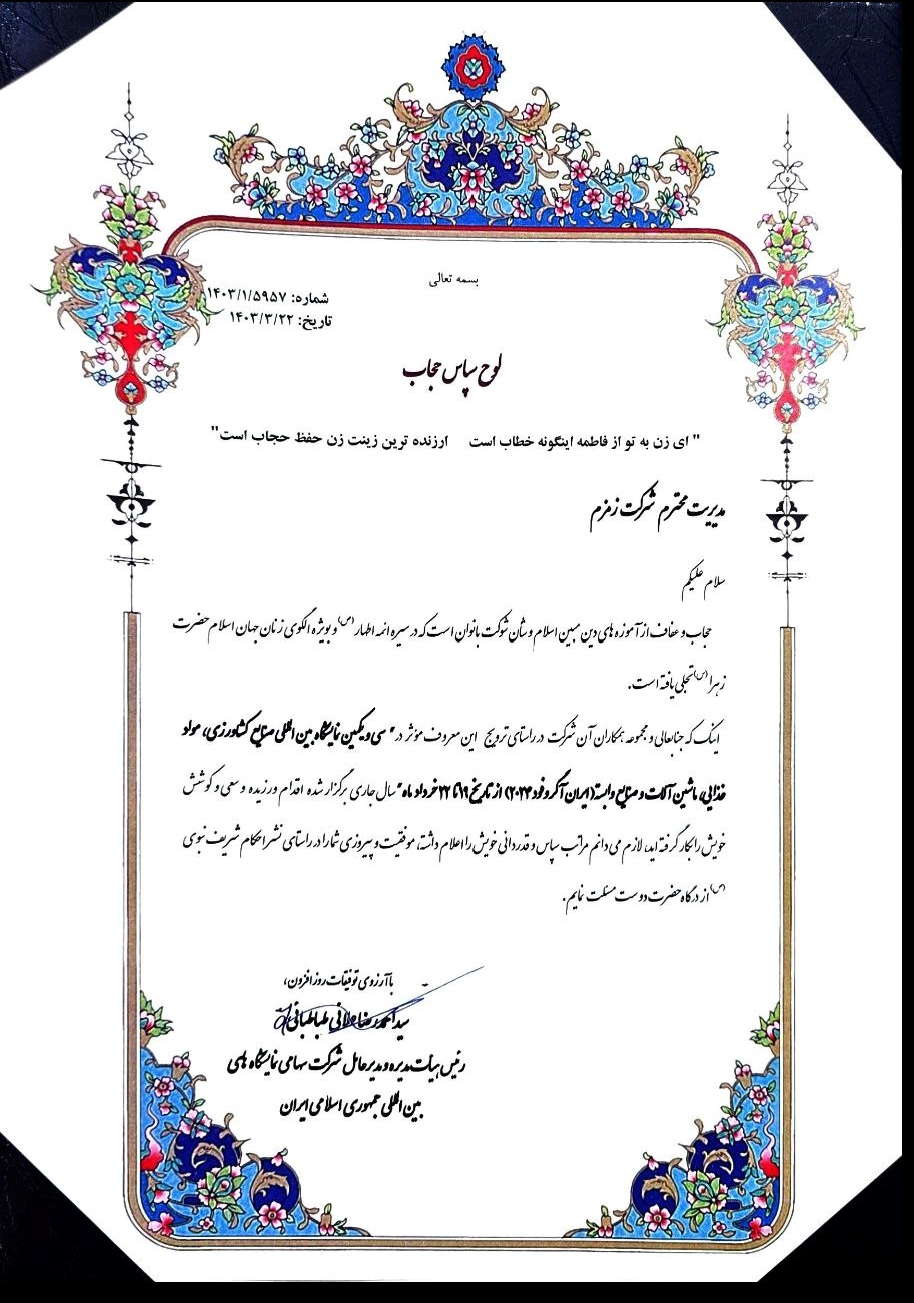 بسمه تعالی
شماره: ۱۴۰۳/۱/۵۹۵۷
تاریخ: ۱۴۰۳/۳/۲۲
لوح سپاس حجاب
" ای زن به تو از فاطمه اینگونه خطاب است ارزنده ترین زینت زن حفظ حجاب است"
مدیریت محترم شرکت زمزم
سلام علیکم
حجاب و عفاف از آموزه های دین مبین اسلام و شأن شوکت بانوان است که در سیره ائمه اطهار (س) و بویژه الگوی زنان جهان اسلام حضرت
زهرا (س) تجلی یافته است.
اینک که جنابعالی و مجموعه همکاران آن شرکت در راستای ترویج این معروف مؤثر در " سی و یکمین نمایشگاه بین المللی صنایع کشاورزی، مواد
غذایی، ماشین آلات و صنایع وابسته (ایران آگروفود ۲۰۲۴) از تاریخ ۱۹ تا ۲۲ خرداد ماه " سال جاری برگزار شده اقدام ورزیده و سعی و کوشش
خویش را بکار گرفته اید، لازم می دانم مراتب سپاس و قدردانی خویش را اعلام داشته، موفقیت و پیروزی شما را در راستای نشر احکام شریف نبوی
(ص) از درگاه حضرت دوست مسئلت نمایم.
با آرزوی توفیقات روز افزون،
سید احمدرضا علائی طباطبائی
رئیس هیات مدیره و مدیر عامل شرکت سهامی نمایشگاه های
بین المللی جمهوری اسلامی ایران